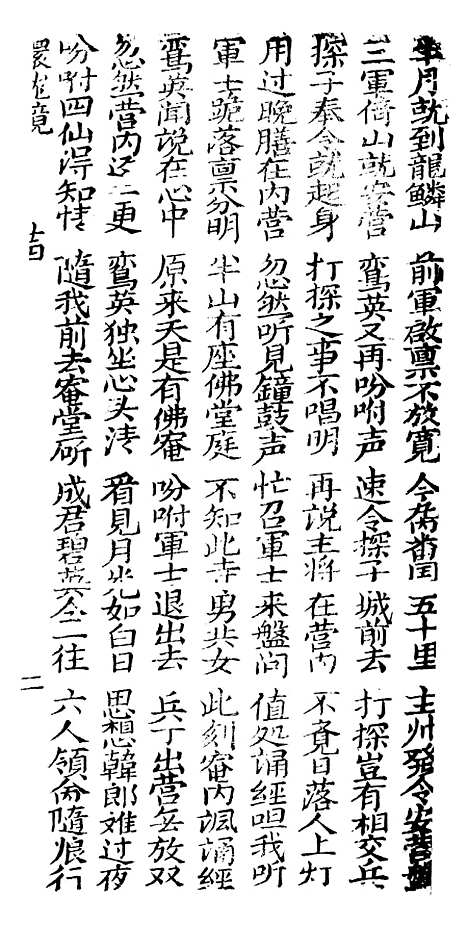 半月就到龍鱗山 前軍啟禀不放寬 今离畨囯五十里 主州發令安营盤
三軍倚山就安营 鸾英又再吩咐声 速令探子城前去 打探豈有相交兵
探子奉令就起身 打探之事不唱明 再說主将在营内 不覚日落人上灯
用过晚膳在内营 忽然听見鐘鼓声 忙召軍士来盤问 值処誦經呾我听
軍士跪落禀分明 半山有座佛堂庭 不知此寺男共女 此刻庵内諷誦經
鸾英闻說在心中 原来天是有佛庵 吩咐軍士退出去 兵丁出营去放双
忽然营内近二更 鸾英独坐心头清 看見月光如白日 思想韓郎难过夜
吩咐四仙得知情 隨我前去庵堂所 成君碧英仝二往 六人領命隨娘行
十四 二